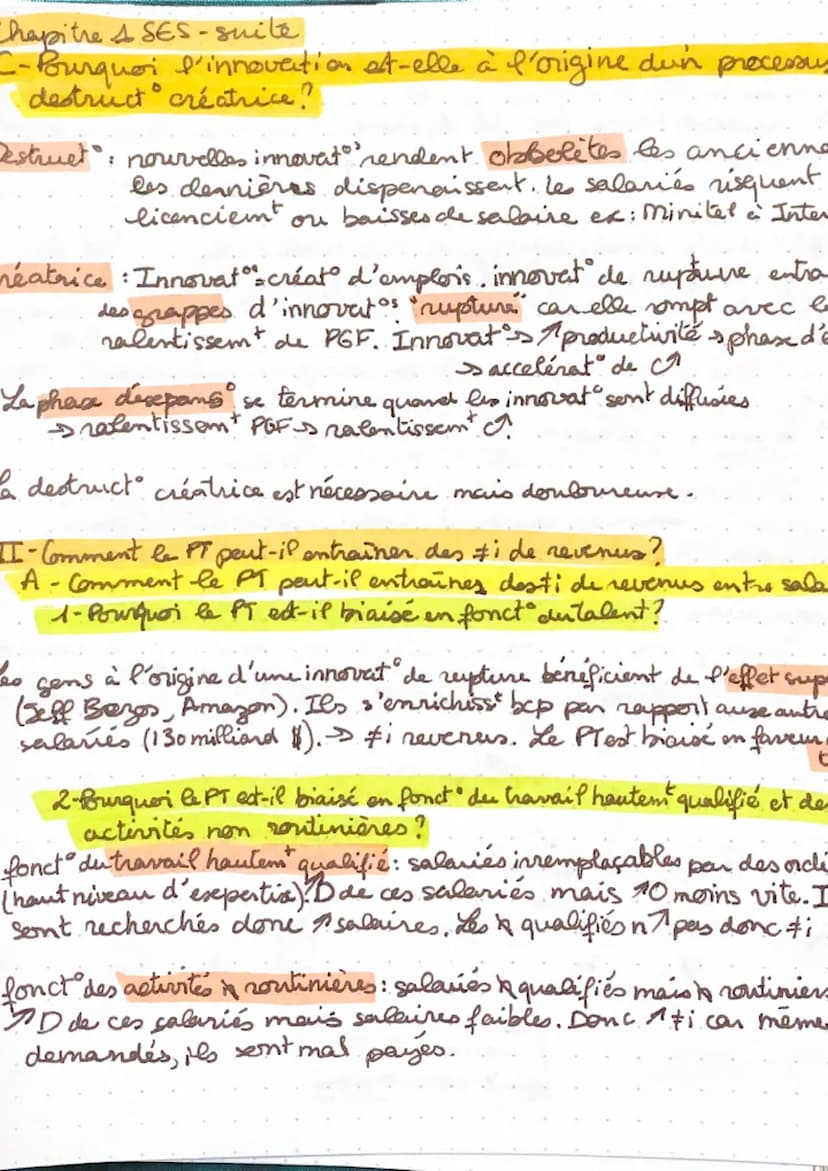 Chapitre 1 SES - suite
C - Pourquoi l'innovation est-elle à l'origine d'un processus
destruct° créatrice ?
Destruct° : nouvelles innovat°s rendent obsolètes les ancienne
les dernières disparaissent. Les salariés risquent
licenciemt ou baisses de salaire ex : Minitel à Inter
réatrice : Innovat°s = créat° d'emplois. innovat° de rupture entra
des grappes d'innovat°s. "rupture" car elle rompt avec le
ralentissemt de PGF. Innovat°s → ↗ productivité → phase d'e
→ accélérat° de C↗
La phase d'expans° se termine quand les innovat° sont diffusées
→ ralentissemt PGF → ralentissemt C↗.
La destruct° créatrice est nécessaire mais douloureuse.
II - Comment le PT peut-il entraîner des ≠i de revenus ?
A - Comment le PT peut-il entraîner des ≠i de revenus entre sala
1 - Pourquoi le PT est-il biaisé en fonct° du talent ?
Les gens à l'origine d'une innovat° de rupture bénéficient de l'effet sup
(Jeff Bezos, Amazon). Ils s'enrichisst bcp par rapport aux autre
salariés (130 milliard $). → ≠i revenus. Le PT est biaisé en faveur
2 - Pourquoi le PT est-il biaisé en fonct° du travail hautemt qualifié et de
activités non routinières ?
fonct° du travail hautemt qualifié : salariés irremplaçables par des ordi
(haut niveau d'expertise). ↗D de ces salariés mais ↗O moins vite. I
sont recherchés donc ↗ salaires. Les \n qualifiés n'↗ pas donc ≠i
fonct° des activités \n routinières : salariés \n qualifiés mais \n routiniers
↗D de ces salariés mais salaires faibles. Donc ↗ ≠i car même
demandés, ils sont mal payés.